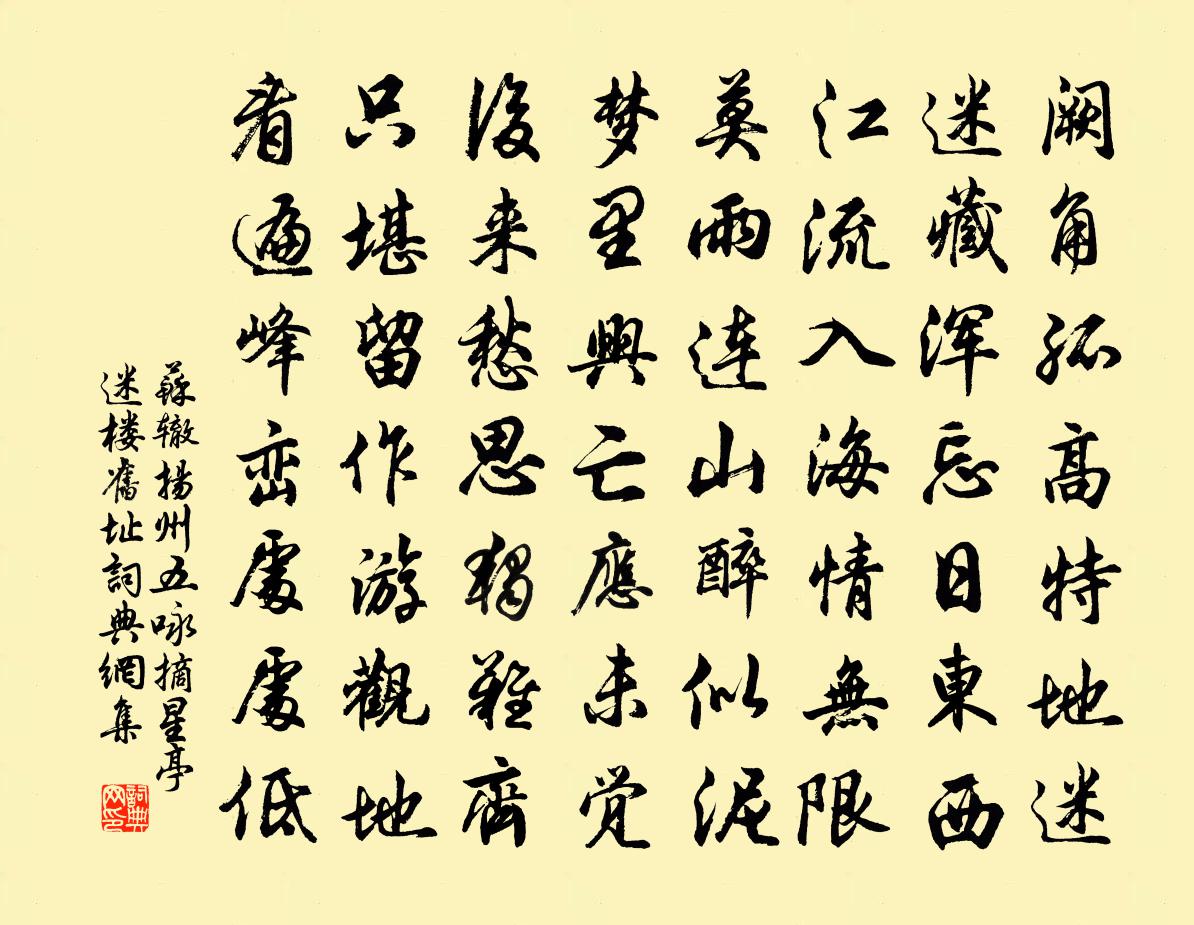 阙角孤高特地迷
迷藏浑忘日東西
江流入海情無限
莫雨连山醉似泥
梦里興亡應未觉
後来愁思獨難齊
只堪留作游觀地
看遍峰峦處處低
蘇辙扬州五咏摘星亭
迷楼舊址詞典網集
詞典
网印